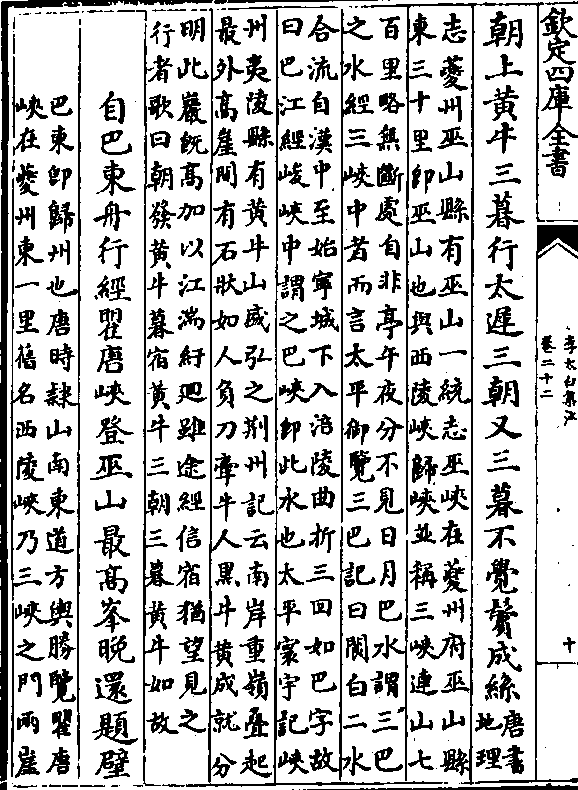 欽定四庫全書
李太白集注
卷二十二
十
朝上黃牛三暮行太遲三朝又三暮不覺鬢成絲
唐書
地理
志夔州巫山縣有巫山一統志巫峽在夔州府巫山縣
東三十里即巫山也與西陵峽歸峽並稱三峽連山七
百里略無斷處自非亭午夜分不見日月巴水謂三巴
之水經三峽中者而言太平御覽三巴記曰閬白二水
合流自漢中至始寧城下入涪陵曲折三回如巴字故
曰巴江經峻峽中謂之巴峽即此水也太平寰宇記峽
州夷陵縣有黃牛山盛弘之荊州記云南岸重嶺疊起
最外高崖間有石狀如人負刀牽牛人黑牛黃成就分
明此巖既高加以江湍紆迴雖途經信宿猶望見之
行者歌曰朝發黃牛暮宿黃牛三朝三暮黃牛如故
自巴東舟行經瞿唐峽登巫山最高峯晚還題壁
巴東即歸州也唐時隸山南東道方輿勝覽瞿唐
峽在夔州東一里舊名西陵峽乃三峽之門兩崖